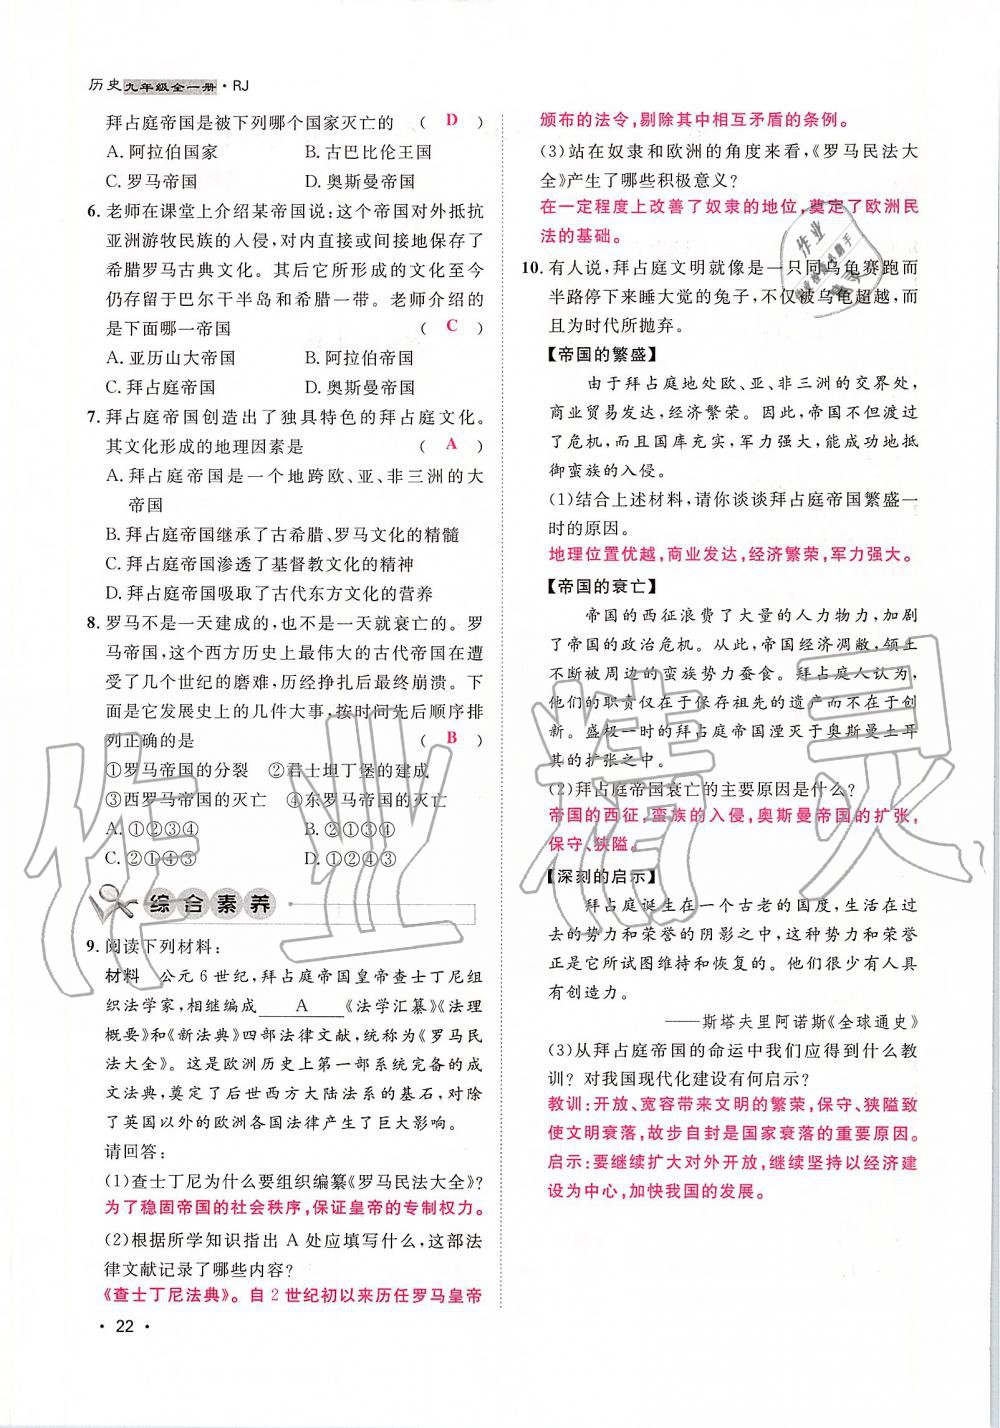 历史九年级全一册·RJ
拜占庭帝国是被下列哪个国家灭亡的 ( D )
A.阿拉伯国家 B.古巴比伦王国
C.罗马帝国 D.奥斯曼帝国
6.老师在课堂上介绍某帝国说:这个帝国对外抵抗
亚洲游牧民族的入侵,对内直接或间接地保存了
希腊罗马古典文化。其后它所形成的文化至今
仍存留于巴尔干半岛和希腊一带。老师介绍的
是下面哪一帝国 ( C )
A.亚历山大帝国 B.阿拉伯帝国
C.拜占庭帝国 D.奥斯曼帝国
7.拜占庭帝国创造出了独具特色的拜占庭文化。
其文化形成的地理因素是 ( A )
A.拜占庭帝国是一个地跨欧、亚、非三洲的大
帝国
B.拜占庭帝国继承了古希腊、罗马文化的精髓
C.拜占庭帝国渗透了基督教文化的精神
D.拜占庭帝国吸取了古代东方文化的营养
8.罗马不是一天建成的,也不是一天就衰亡的。罗
马帝国,这个西方历史上最伟大的古代帝国在遭
受了几个世纪的磨难,历经挣扎后最终崩溃。下
面是它发展史上的几件大事,按时间先后顺序排
列正确的是 ( B )
①罗马帝国的分裂 ②君士坦丁堡的建成
③西罗马帝国的灭亡 ④东罗马帝国的灭亡
A.①②③④ B.②①③④
C.②①④③ D.①②④③
综合素养
9.阅读下列材料:
材料 公元6世纪,拜占庭帝国皇帝查士丁尼组
织法学家,相继编成 A 《法学汇纂》《法理
概要》和《新法典》四部法律文献,统称为《罗马民
法大全》。这是欧洲历史上第一部系统完备的成
文法典,奠定了后世西方大陆法系的基石,对除
英国以外的欧洲各国法律产生了巨大影响。
请回答:
(1)查士丁尼为什么要组织编纂《罗马民法大全》?
为了稳固帝国的社会秩序,保证皇帝的专制权力。
(2)根据所学知识指出A处应填写什么,这部法
律文献记录了哪些内容?
《查士丁尼法典》。自2世纪初以来历任罗马皇帝
·22·
颁布的法令,剔除其中相互矛盾的条例。
(3)站在奴隶和欧洲的角度来看,《罗马民法大
全》产生了哪些积极意义?
在一定程度上改善了奴隶的地位,奠定了欧洲民
法的基础。
10.有人说,拜占庭文明就像是一只同乌龟赛跑而
半路停下来睡大觉的兔子,不仅被乌龟超越,而
且为时代所抛弃。
【帝国的繁盛】
由于拜占庭地处欧、亚、非三洲的交界处,
商业贸易发达,经济繁荣。因此,帝国不但渡过
了危机,而且国库充实,军力强大,能成功地抵
御蛮族的入侵。
(1)结合上述材料,请你谈谈拜占庭帝国繁盛一
时的原因。
地理位置优越,商业发达,经济繁荣,军力强大。
【帝国的衰亡】
帝国的西征浪费了大量的人力物力,加剧
了帝国的政治危机。从此,帝国经济凋敝,领土
不断被周边的蛮族势力蚕食。拜占庭人认为,
他们的职责仅在于保存祖先的遗产而不在于创
新。盛极一时的拜占庭帝国湮灭于奥斯曼土耳
其的扩张之中。
(2)拜占庭帝国衰亡的主要原因是什么?
帝国的西征,蛮族的入侵,奥斯曼帝国的扩张,
保守、狭隘。
【深刻的启示】
拜占庭诞生在一个古老的国度,生活在过
去的势力和荣誉的阴影之中,这种势力和荣誉
正是它所试图维持和恢复的。他们很少有人具
有创造力。
——斯塔夫里阿诺斯《全球通史》
(3)从拜占庭帝国的命运中我们应得到什么教
训?对我国现代化建设有何启示?
教训:开放、宽容带来文明的繁荣,保守、狭隘致
使文明衰落,故步自封是国家衰落的重要原因。
启示:要继续扩大对外开放,继续坚持以经济建
设为中心,加快我国的发展。
作业精灵